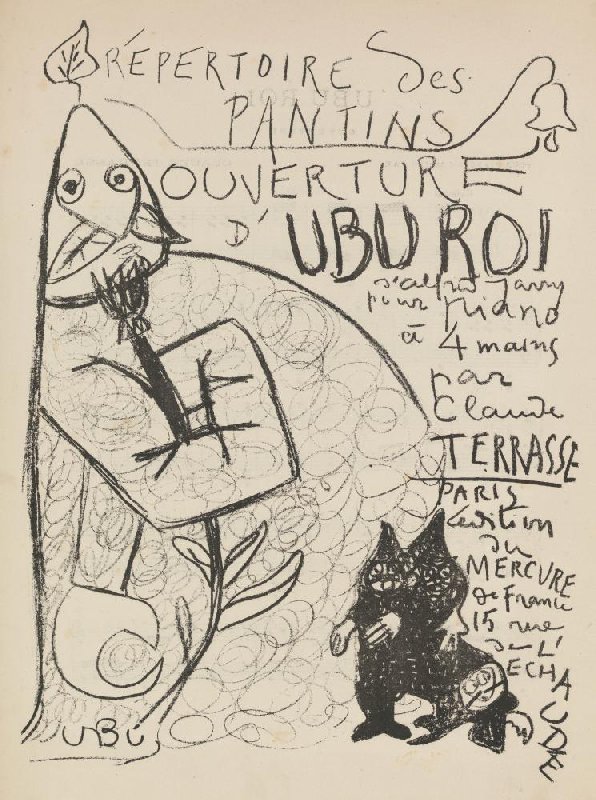 RÉPERTOIRE des
PANTINS
OUVERTURE
D'UBU ROI
d'alfred Jarry
pour piano
à 4 mains
par
Claude
TERRASSE
PARIS
édition
du
MERCURE
de france
15 rue
de L'
ECHAUDE
UBU